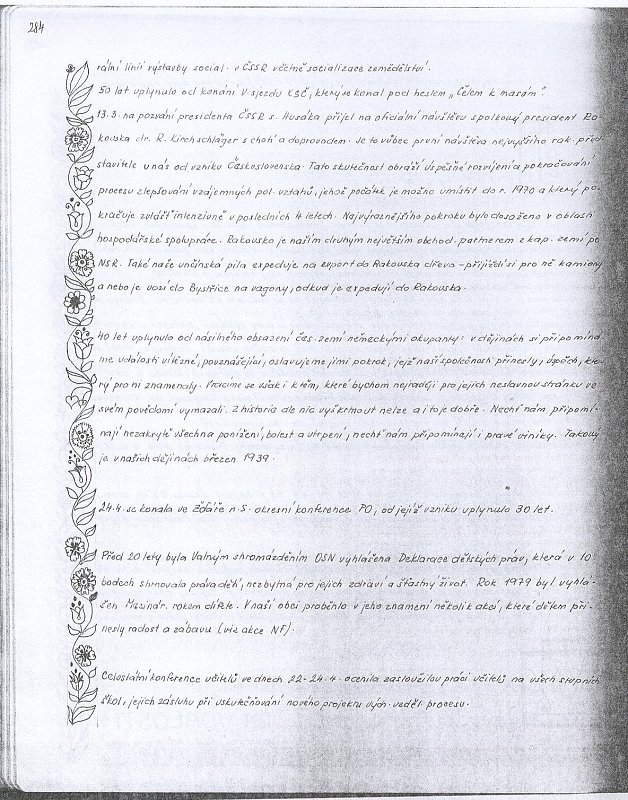 284
rální linii výstavby social. v ČSSR včetně socializace zemědělství.
50 let uplynulo od konání V. sjezdu KSČ, který se konal pod heslem „Čelem k masám".
13.3. na pozvání presidenta ČSSR s. Husáka přijel na oficiální návštěvu spolkový president Ra-
kouska dr. R. Kirchschläger s chotí a doprovodem. Je to vůbec první návštěva nejvyššího rak. před-
stavitele u nás od vzniku Československa. Tato skutečnost obráží úspěšné rozvíjení a pokračování
procesu zlepšování vzájemných pol. vztahů, jehož počátek je možno umístit do r. 1970 a který po-
kračuje zvlášť intenzivně v posledních 4 letech. Nejvýraznějšího pokroku bylo dosaženo v oblasti
hospodářské spolupráce. Rakousko je naším druhým největším obchod. partnerem z kap. zemí po
NSR. Také naše unčínská pila expeduje na export do Rakouska dřevo – přijíždí si pro ně kamiony
a nebo je vozí do Bystřice na vagony, odkud je expedují do Rakouska.
40 let uplynulo od násilného obsazení čes. zemí německými okupanty: v dějinách si připomíná-
me události vítězné, povznášející, oslavujeme jimi pokrok, jejž naší společnosti přinesly, úspěch, kte-
rý pro ni znamenaly. Vracíme se však i k těm, které bychom nejraději pro jejich neslavnou stránku ve
svém povědomí vymazali. Z historie ale nic vyškrtnout nelze a i to je dobře. Nechť nám připomí-
nají nezakrytě všechna ponížení, bolest a utrpení, nechť nám připomínají i pravé viníky. Takový
je v našich dějinách březen 1939.
24.4. se konala ve Žďáře n. S. okresní konference PO, od jejíž vzniku uplynulo 30 let.
Před 20 lety byla Valným shromážděním OSN vyhlášena Deklarace dětských práv, která v 10
bodech shrnovala práva dětí, nezbytná pro jejich zdraví a šťastný život. Rok 1979 byl vyhlá-
šen Mezinár. rokem dítěte. V naší obci proběhlo v jeho znamení několik akcí, které dětem při-
nesly radost a zábavu (viz akce NF).
Celostátní konference učitelů ve dnech 22-24.4. ocenila zaslouživou práci učitelů na všech stupních
škol, jejich zásluhu při uskutečňování nového projektu vých. vzděl. procesu.